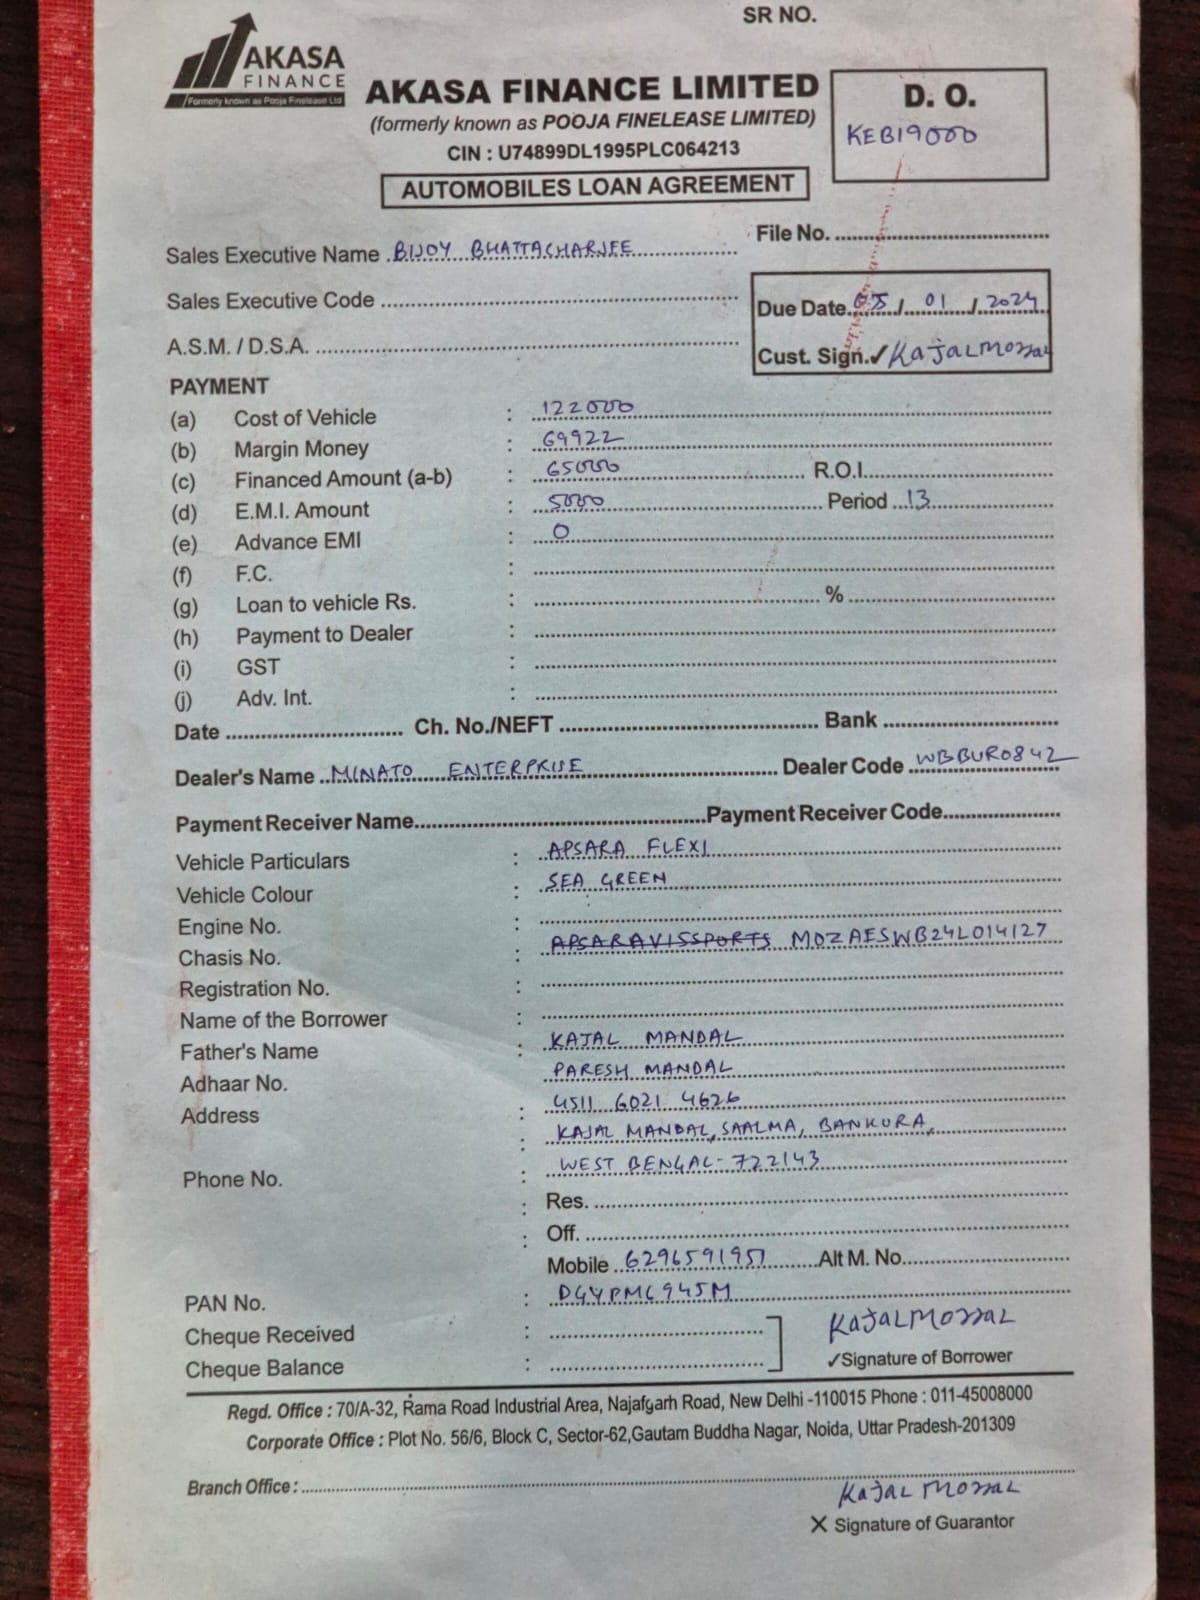 SR NO.
AKASA
FINANCE
Formerly known as Pooja Finelease Ltd
AKASA FINANCE LIMITED
(formerly known as POOJA FINELEASE LIMITED)
CIN : U74899DL1995PLC064213
AUTOMOBILES LOAN AGREEMENT
D. O.
KEB19000
File No.
Sales Executive Name BIJOY BHATTACHARJEE
Sales Executive Code
Due Date 05/01/2024
A.S.M. / D.S.A.
Cust. Sign.✓ KaJaLMOnaL
PAYMENT
(a) Cost of Vehicle : 122000
(b) Margin Money : 69922
(c) Financed Amount (a-b) : 65000 R.O.I.
(d) E.M.I. Amount : 5000 Period 13
(e) Advance EMI : 0
(f) F.C. :
(g) Loan to vehicle Rs. : %
(h) Payment to Dealer :
(i) GST :
(j) Adv. Int. :
Date Ch. No./NEFT Bank
Dealer's Name MINATO ENTERPRISE Dealer Code WBBUR0842
Payment Receiver Name Payment Receiver Code
Vehicle Particulars : APSARA FLEXI
Vehicle Colour : SEA GREEN
Engine No. :
Chasis No. : APSARAVISSPORTS MOZAESWB24L014127
Registration No. :
Name of the Borrower : KAJAL MANDAL
Father's Name : PARESH MANDAL
Adhaar No. : 4511 6021 4626
Address : KAJAL MANDAL, SAALMA, BANKURA,
WEST BENGAL-722143
Phone No. : Res.
: Off.
Mobile 6296591957 Alt M. No.
PAN No. : DGYPM6945M
Cheque Received :
KaJaLMOnaL
Cheque Balance :
✓Signature of Borrower
Regd. Office : 70/A-32, Rama Road Industrial Area, Najafgarh Road, New Delhi -110015 Phone : 011-45008000
Corporate Office : Plot No. 56/6, Block C, Sector-62,Gautam Buddha Nagar, Noida, Uttar Pradesh-201309
Branch Office :
KaJaL MOnaL
X Signature of Guarantor